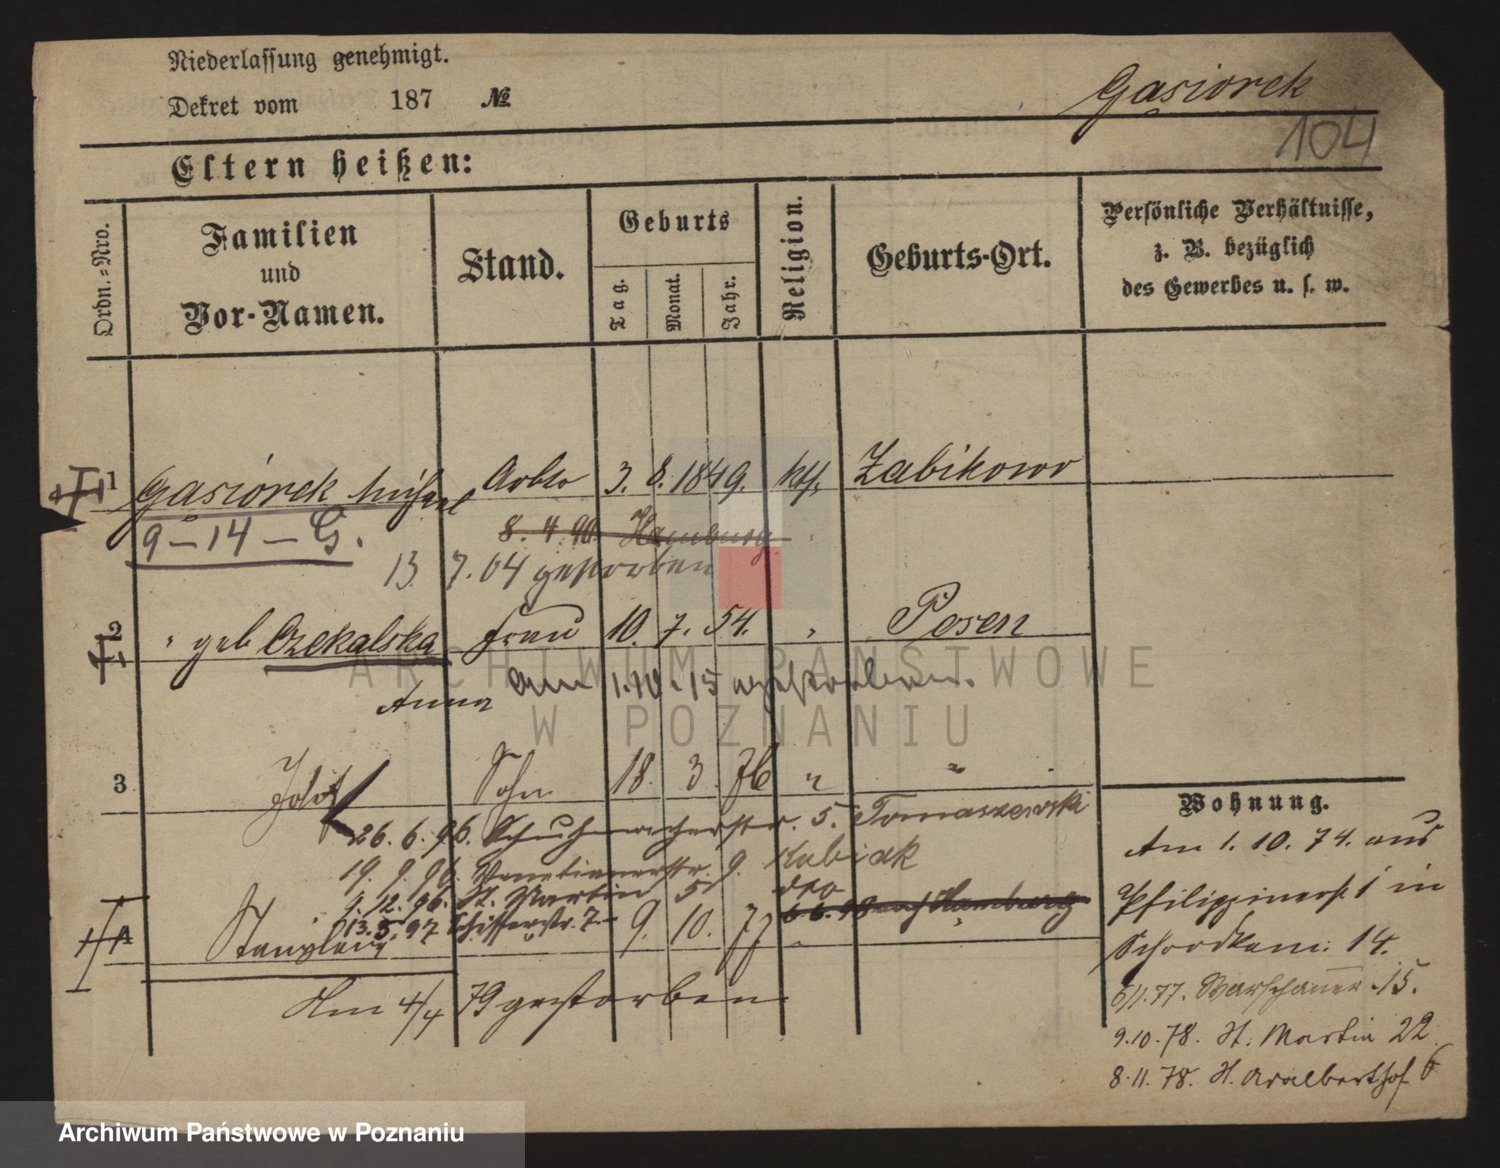 Niederlassung genehmigt.
Dekret vom 187 №
Gasiorek
104
Eltern heißen:
Ordn.=Nro.
Familien und Vor-Namen.
Stand.
Geburts
Tag.
Monat.
Jahr.
Religion.
Geburts-Ort.
Persönliche Verhältnisse,
z. B. bezüglich
des Gewerbes u. s. w.
1 Gasiorek Michael Arbtr 3. 8. 1849. kth. Zabikowo
8. 4. 90 Hamburg
9 – 14 – G.
13. 7. 04 gestorben
2 " geb Czekalska Frau 10. 7. 54. " Posen
Anna am 1.10.15 gestorben.
3 Sohn 18. 3 76 " "
Wohnung.
26. 6. 96. Schuhmacherstr. 5. Tomaszewski
19. 9. 96. Venetianerstr. 9. Kubiak
1. 12. 96. St. Martin 5
13. 5. 97 Schifferstr. 7
nach Hamburg
4 Stanislaus 9. 10. 77 "
Am 4/4 79 gestorben
Am 1. 10. 74. aus
Philippinerst. 1 in
14.
6/11. 77. Warschauer 15.
9. 10. 78. St. Martin 22
8. 11. 78. St. Adalberthof 6
ARCHIWUM PAŃSTWOWE
W POZNANIU
Archiwum Państwowe w Poznaniu